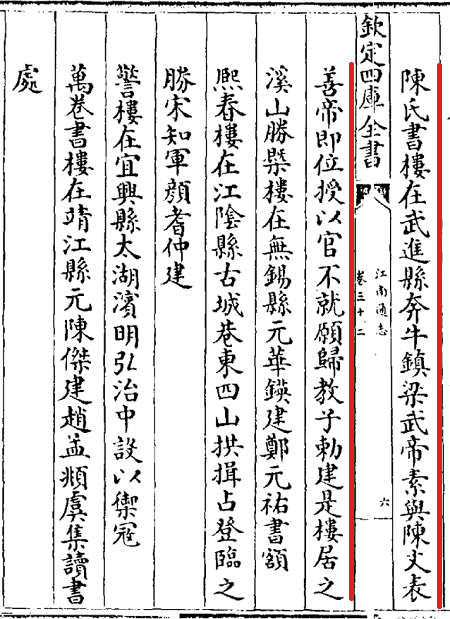 陳氏書樓在武進縣奔牛鎮梁武帝素與陳文表
欽定四庫全書
江南通志
卷三十二
六
善帝即位授以官不就願歸教子勅建是樓居之
溪山勝槩樓在無錫縣元華鍈建鄭元祐書額
熈春樓在江陰縣古城巷東四山拱揖占登臨之
勝宋知軍顔耆仲建
警樓在宜興縣太湖濵明弘治中設以禦冦
萬卷書樓在靖江縣元陳傑建趙孟頫虞集讀書
處